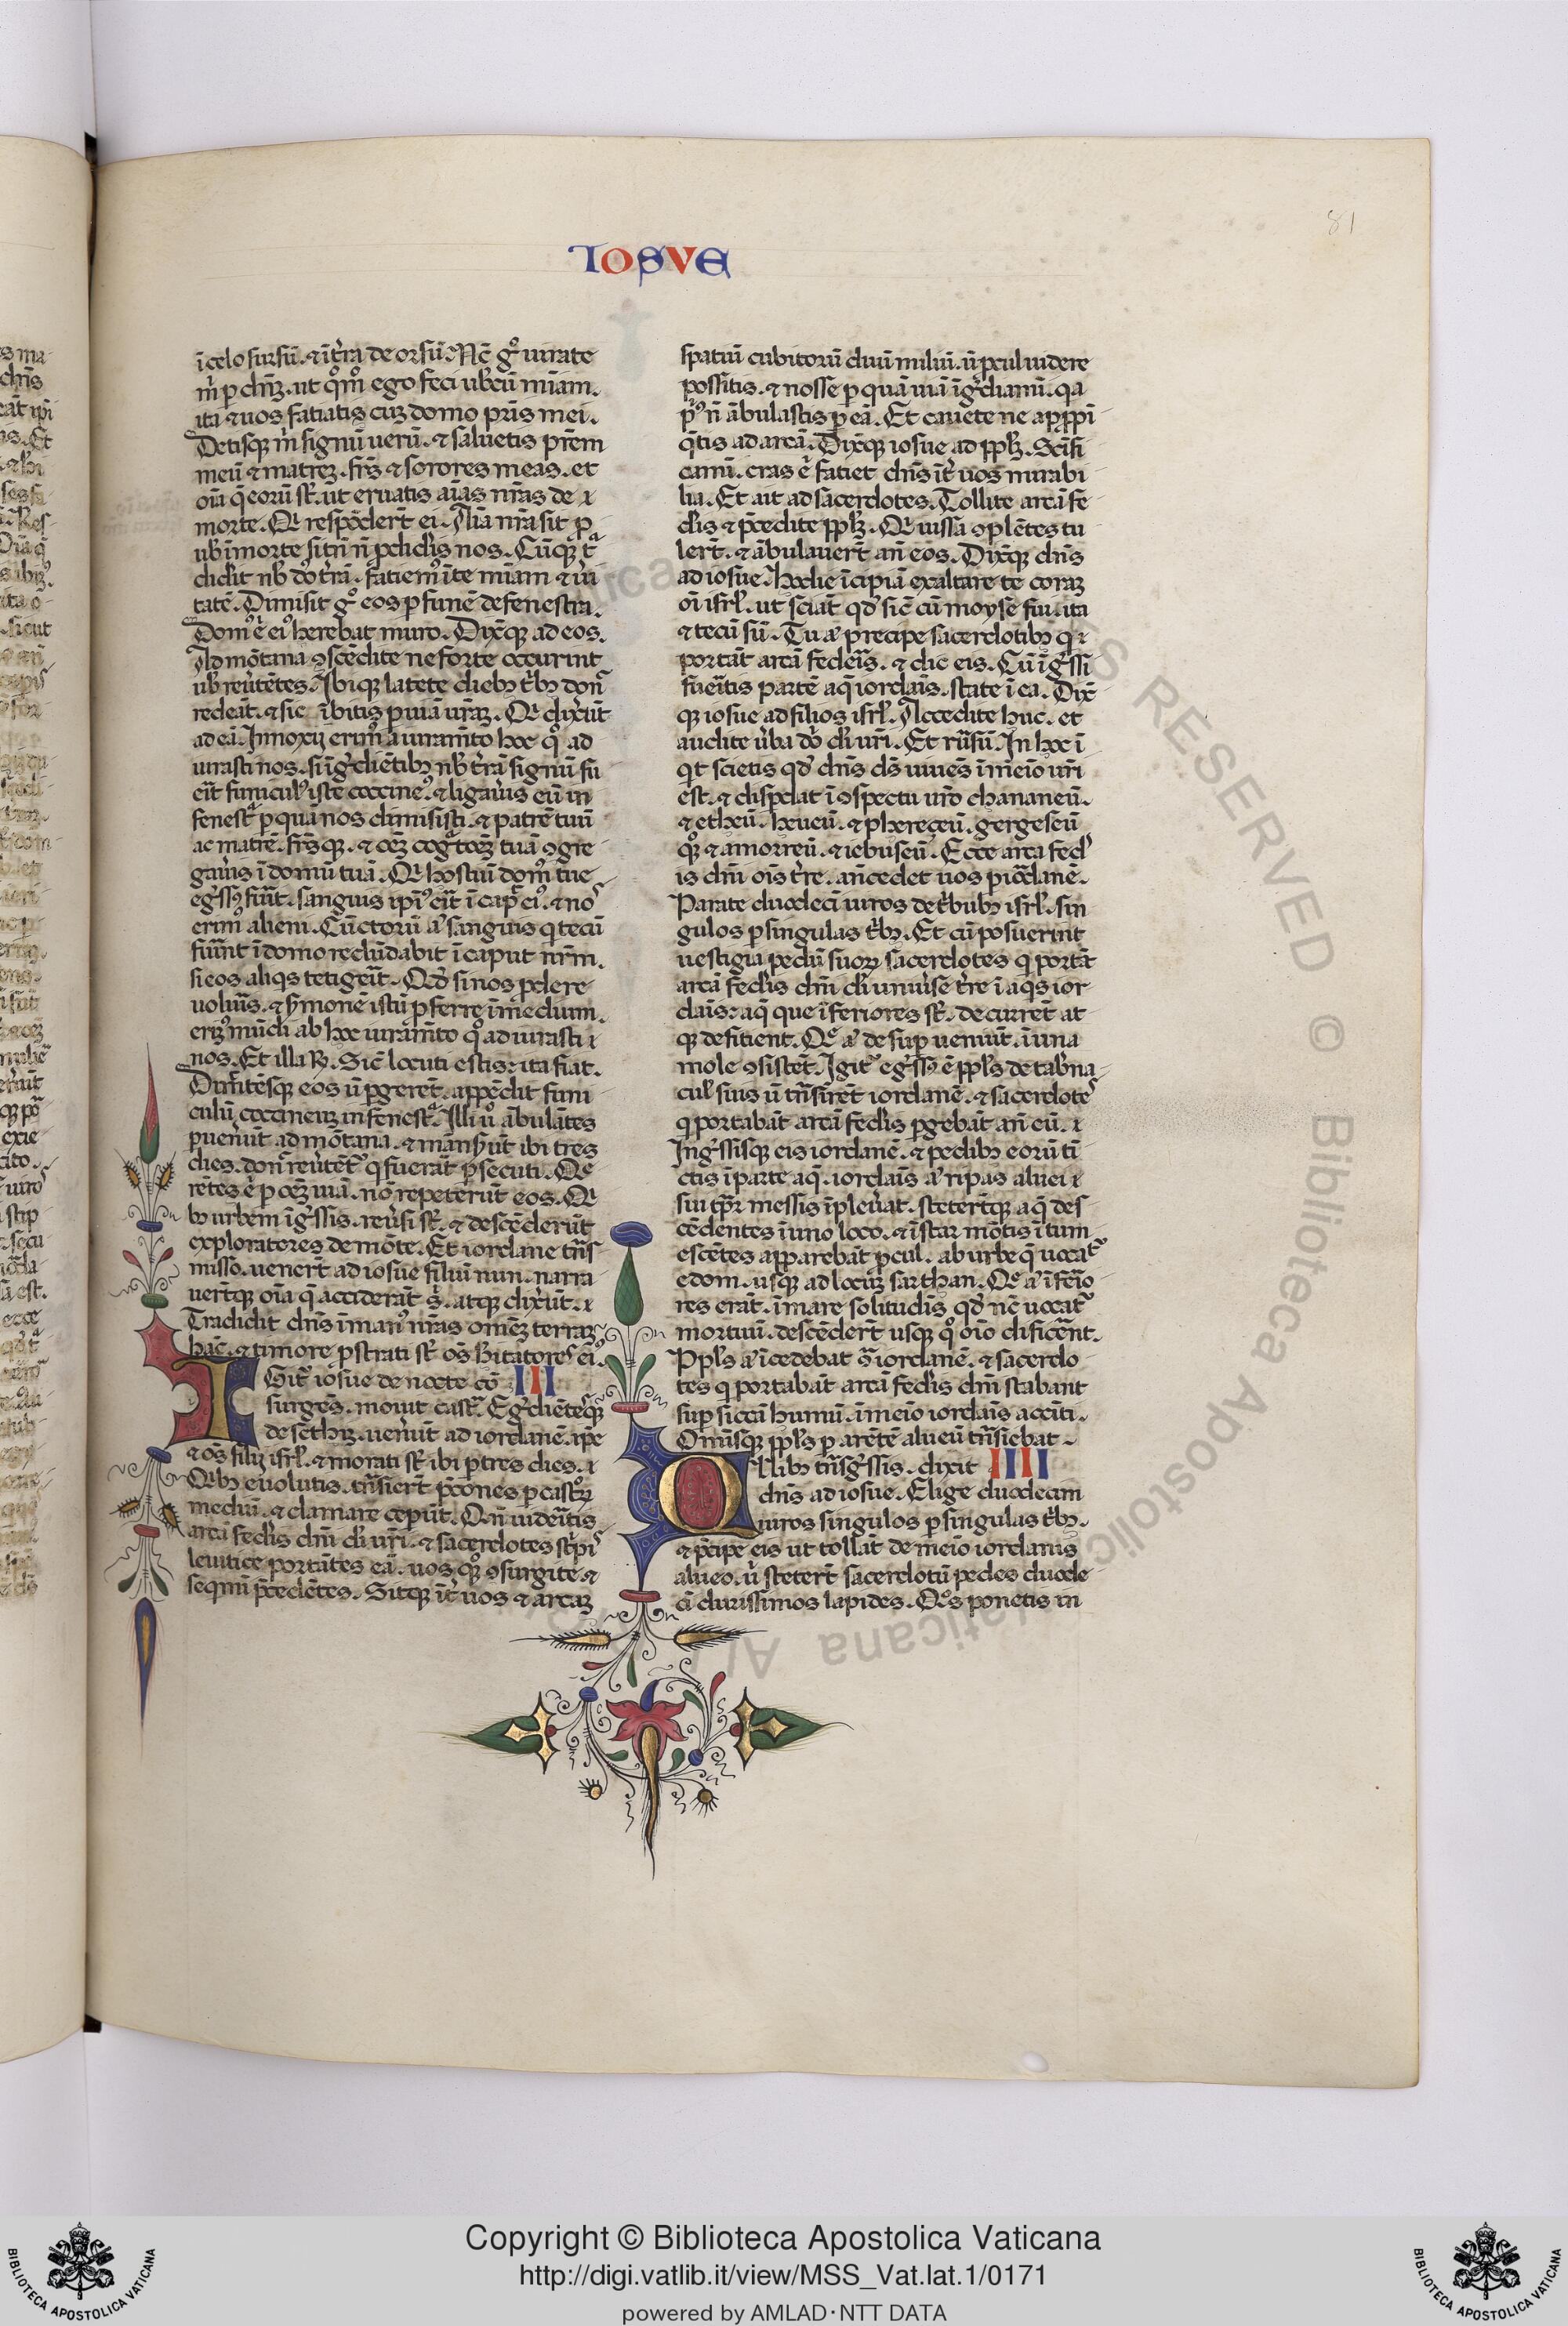 IOSVE
81
ī celo sursū. ⁊ ī t̄ra deorsū. Nc̄ gͦ iurate
m̄ p dn̄ꝫ. ut qͦmͦ ego feci ub̄cū mīam.
ita ⁊ uos fatiatis cuꝫ domo pr̄is mei.
Detisqꝫ m̄ signū uerū. ⁊ saluetis pr̄em
meū ⁊ matreꝫ. fr̄s ⁊ sorores meas. et
oīa q̄ eorū st̄. ut eruatis aīas nr̄as de
morte. Qi respōdert̄ ei. Aīa nr̄a sit p
ub̄ ī morte si tn̄ n̄ pdid̄is nos. Cūqꝫ tͣ
didit nb̄ do᷒ t̄rā. fatiem᷒ ī te mīam ⁊ ūi
tatē. Dimisit gͦ eos p funē de fenestra.
Dom᷒ .n. ei᷒ herebat muro. Dix̄qꝫ ad eos.
Ad mōtana ꝯscēdite ne forte occurrint
ub̄ reūtētes. Ibiqꝫ latete diebꝫ t̄bꝫ don̄
redeāt. ⁊ sic ībitis p uiā ur̄aꝫ. Qi dixūt
ad eā. Innoxij erim᷒ a iuram̄to hoc qͦ ad
iurasti nos. si īgͥdiētibꝫ nb̄ t̄rā signū fu
eīt funicul᷒ iste coccine᷒. ⁊ ligaūis eū in
fenestͣ p quā nos dimisisti. ⁊ patrē tuū
ac matrē. fr̄sqꝫ. ⁊ oēꝫ cogͣtōeꝫ tuā ꝯgre
gaūis ī domū tuā. Qi hostiū dom᷒ tue
egͥss᷒ fūit. sanguis ipi᷒ eīt ī cap̄ ei᷒. ⁊ nos
erim᷒ alieni. Cūctorū a᷒ sanguis q̄ tecū
fūint ī domo redūdabit ī caput nr̄m.
si eos aliqs tetigeīt. Qd̄ si nos pdere
uoluīs. ⁊ ẏmonē istū pferre ī mediū.
erim᷒ mūdi ab hoc iuram̄to qͦ adiurasti
nos. Et illa R̄. Sic̄ locuti estis: ita fiat.
Dimitēsqꝫ eos ū pgerēt. appēdit funi
culū coccineuꝫ in fenestͣ. Illi uͦ ābulātes
pueūnt ad mōtana. ⁊ mansūt ibi tres
dies. don̄ reūtēt᷒ q̄ fuerāt psecuti. Qe
rētes .n. p oēꝫ uiā. nō repeterūt eos. Qi
bꝫ urbem īgͥssis. reūsi st̄. ⁊ descēderūt
exploratores de mōte. Et iordane tn̄s
misso. uenert̄ ad iosue filiū nun. narra
uertqꝫ oīa q̄ acciderāt s̄. atqꝫ dixūt.
Tradidit dn̄s ī man᷒ nr̄as omēꝫ terraꝫ
hāc. ⁊ timore pstrati st̄ oēs hītatores ei᷒.
IGit᷒ iosue de nocte cō III
surgēs. mouit castͣ. Egͥdiētesqꝫ
de sethīꝫ. ueūnt ad iordanē. ipe
⁊ oēs filij isrl̄. ⁊ morati st̄ ibi p tres dies.
Qibꝫ euolutis. tn̄siert̄ pcones p castͦꝝ
mediū. ⁊ clamare cepūt. Qn̄ uideītis
arcā fed̄is dn̄i d̄i ur̄i. ⁊ sacerdotes stͥpis
leuitice portātes eā. uos qͦꝫ ꝯsurgite. ⁊
seqmī pcedētes. Sitqꝫ īt̄ uos ⁊ arcaꝫ
spatiū cubitorū duū miliū. ū pcul uidere
possitis. ⁊ nosse p quā uiā īgͥdiami. qa
p᷒ n̄ ābulastis p eā. Et cauete ne appropī
q̄tis ad arcā. Dix̄qꝫ iosue ad ppl̄ꝫ. Scīfi
cami. cras .n. fatiet dn̄s īt̄ uos mirabi
lia. Et ait ad sacerdotes. Tollite arcā fe
d̄is ⁊ pcedite ppl̄ꝫ. Qi iussa ꝯplētes tu
lert̄. ⁊ ābulauert̄ an̄ eos. Dix̄qꝫ dn̄s
ad iosue. Hodie īcipiā exaltare te coraꝫ
oī isrl̄. ut sciāt qd̄ sic̄ cū moyse fui. ita
⁊ tecū sū. Tu a᷒ precipe sacerdotibꝫ q̄
portāt arcā federīs. ⁊ dic eis. Cū īgͥssi
fueītis partē aq̄ iordaīs. state ī ea. Dix̄
qꝫ iosue ad filios isrl̄. Accedite huc. et
audite ūba do᷒ d̄i ur̄i. Et rūsū. In hoc ī
qt scietis qd̄ dn̄s ds̄ uiuēs ī meīo ur̄i
est. ⁊ dispdat ī ꝯspectu ur̄o chananeū.
⁊ etheū. heueū. ⁊ phereçeū. gergeseū
qͦꝫ ⁊ amorreū. ⁊ iebuseū. Ecce arca fed̄
is dn̄i oīs t̄re. an̄cedet uos p iordanē.
Parate duodecī uiros de t̄bubꝫ isrl̄. sin
gulos p singulas t̄bꝫ. Et cū posuerint
uestigia pedū suoꝝ sacerdotes q̄ portāt
arcā fed̄is dn̄i d̄i uniūse t̄re ī aq̄s ior
daīs: aq̄ que īferiores st̄. decurrēt at
qꝫ defitient. Qe a᷒ desup ueniūt. ī una
mole ꝯsistēt. Igit᷒ egͥss᷒ .n. ppl̄s de tab̄na
cul̄ suis ū tn̄sirēt iordanē. ⁊ sacerdotes
q̄ portabāt arcā fed̄is pgebāt an̄ eū.
Ingͥssisqꝫ eis iordanē. ⁊ pedibꝫ eorū tī
ctis ī parte aq̄. iordaīs a᷒ ripas aluei
sui tpr̄ messis īpleūat. stetertqꝫ aq̄ des
cēdentes ī uno loco. ⁊ īstar mōtis ītum
escētes apparebāt pcul. ab urbe q̄ uocat᷒
edom. usqꝫ ad locuꝫ sarthan. Qe a᷒ īfeīo
res erāt. ī mare solitudīs qd̄ nc̄ uocat᷒
mortuū. descēdert̄ usqꝫ qͦ oīo deficēnt.
Ppl̄s a᷒ īcedebat 9͂ iordanē. ⁊ sacerdo
tes q̄ portabāt arcā fed̄is dn̄i stabant
sup siccā humū. ī meīo iordaīs accīti.
Omisqꝫ ppl̄s p arētē alueū tn̄siebat
QVibꝫ tn̄sgͥssis. dixit IIII
dn̄s ad iosue. Elige duodecim
uiros singulos p singulas t̄bꝫ.
⁊ pcipe eis ut tollāt de meīo iordanis
alueo. ū stetert̄ sacerdotū pedes duode
cī durissimos lapides. Qͦs ponetis in
Copyright © Biblioteca Apostolica Vaticana
http://digi.vatlib.it/view/MSS_Vat.lat.1/0171
powered by AMLAD·NTT DATA
BIBLIOTECA APOSTOLICA VATICANA
BIBLIOTECA APOSTOLICA VATICANA